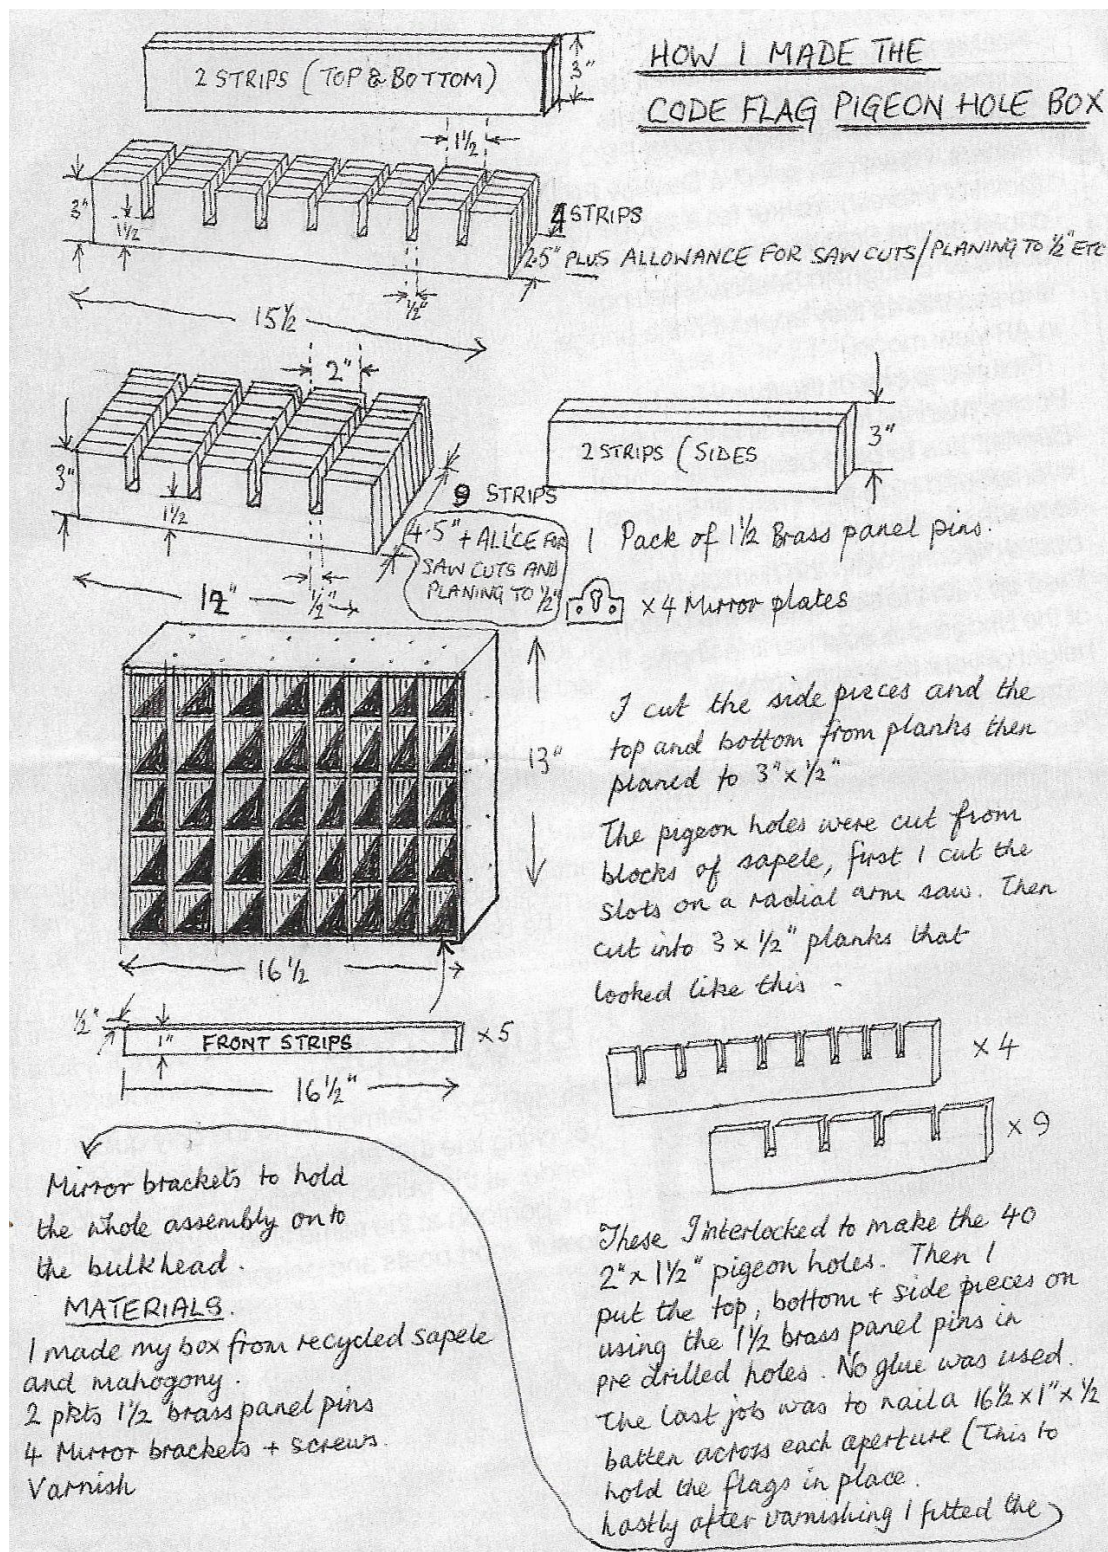 HOW I MADE THE
CODE FLAG PIGEON HOLE BOX
2 STRIPS (TOP & BOTTOM)
3"
1½
3"
1½
4 STRIPS
2·5" PLUS ALLOWANCE FOR SAW CUTS/PLANING TO ½" ETC
½"
15½
2"
3"
1½
2 STRIPS (SIDES
3"
9 STRIPS
4·5" + ALL'CE FOR
SAW CUTS AND
PLANING TO ½"
12"
½"
1 Pack of 1½ Brass panel pins.
x 4 Mirror plates
13"
16½
I cut the side pieces and the
top and bottom from planks then
planed to 3" x ½"
The pigeon holes were cut from
blocks of sapele, first I cut the
slots on a radial arm saw. Then
cut into 3 x ½" planks that
looked like this -
½"
1"
FRONT STRIPS
x 5
16½"
x 4
x 9
These I interlocked to make the 40
2" x 1½" pigeon holes. Then I
put the top, bottom + side pieces on
using the 1½ brass panel pins in
pre drilled holes. No glue was used.
The last job was to nail a 16½ x 1" x ½
batten across each aperture (This to
hold the flags in place.
Lastly after varnishing I fitted the
Mirror brackets to hold
the whole assembly onto
the bulkhead.
MATERIALS.
I made my box from recycled sapele
and mahogony.
2 pkts 1½ brass panel pins
4 Mirror brackets + screws.
Varnish